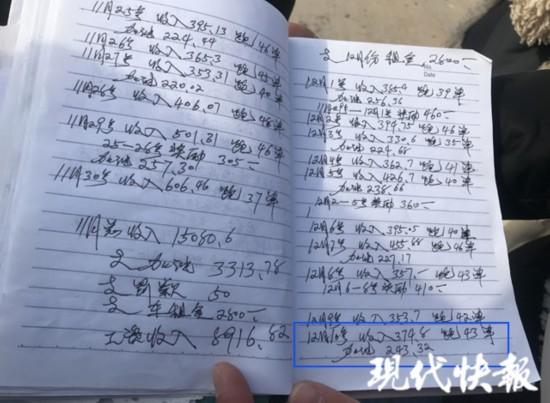 11月25号 收入395.13 跑46单
加油 224.44
11月26号 收入365.3
11月27号 收入353.31 跑45单
加油 220.02 跑40单
11月28号 收入406.07 跑48单
11月29号 收入501.31 跑46单
25-28号奖励 305.—
加油 257.301
11月30号 收入606.46 跑37单
11月总收入15080.6
加油 3313.78
罚款 50
车租金 2800.—
工资收入 8916.82
12月份租金 2600.—
Date
12月1号 收入365.4 跑39单
加油 256.36
460.—
12月2号 收入394.75 跑46单
12月3号 收入330.6 跑35单
加油 224.66
12月4号 收入362.7 跑41单
12月5号 收入426.7 跑40单
加油 238.66
12月2-5号奖励 360.—
12月6号 收入395.05 跑40单
12月7号 收入455.68 跑46单
加油 227.17
12月8号 收入357.— 跑43单
12月6-8号奖励 410.—
12月9号 收入353.7 跑42单
12月10号 收入374.8 跑43单
加油 243.32
现代快報